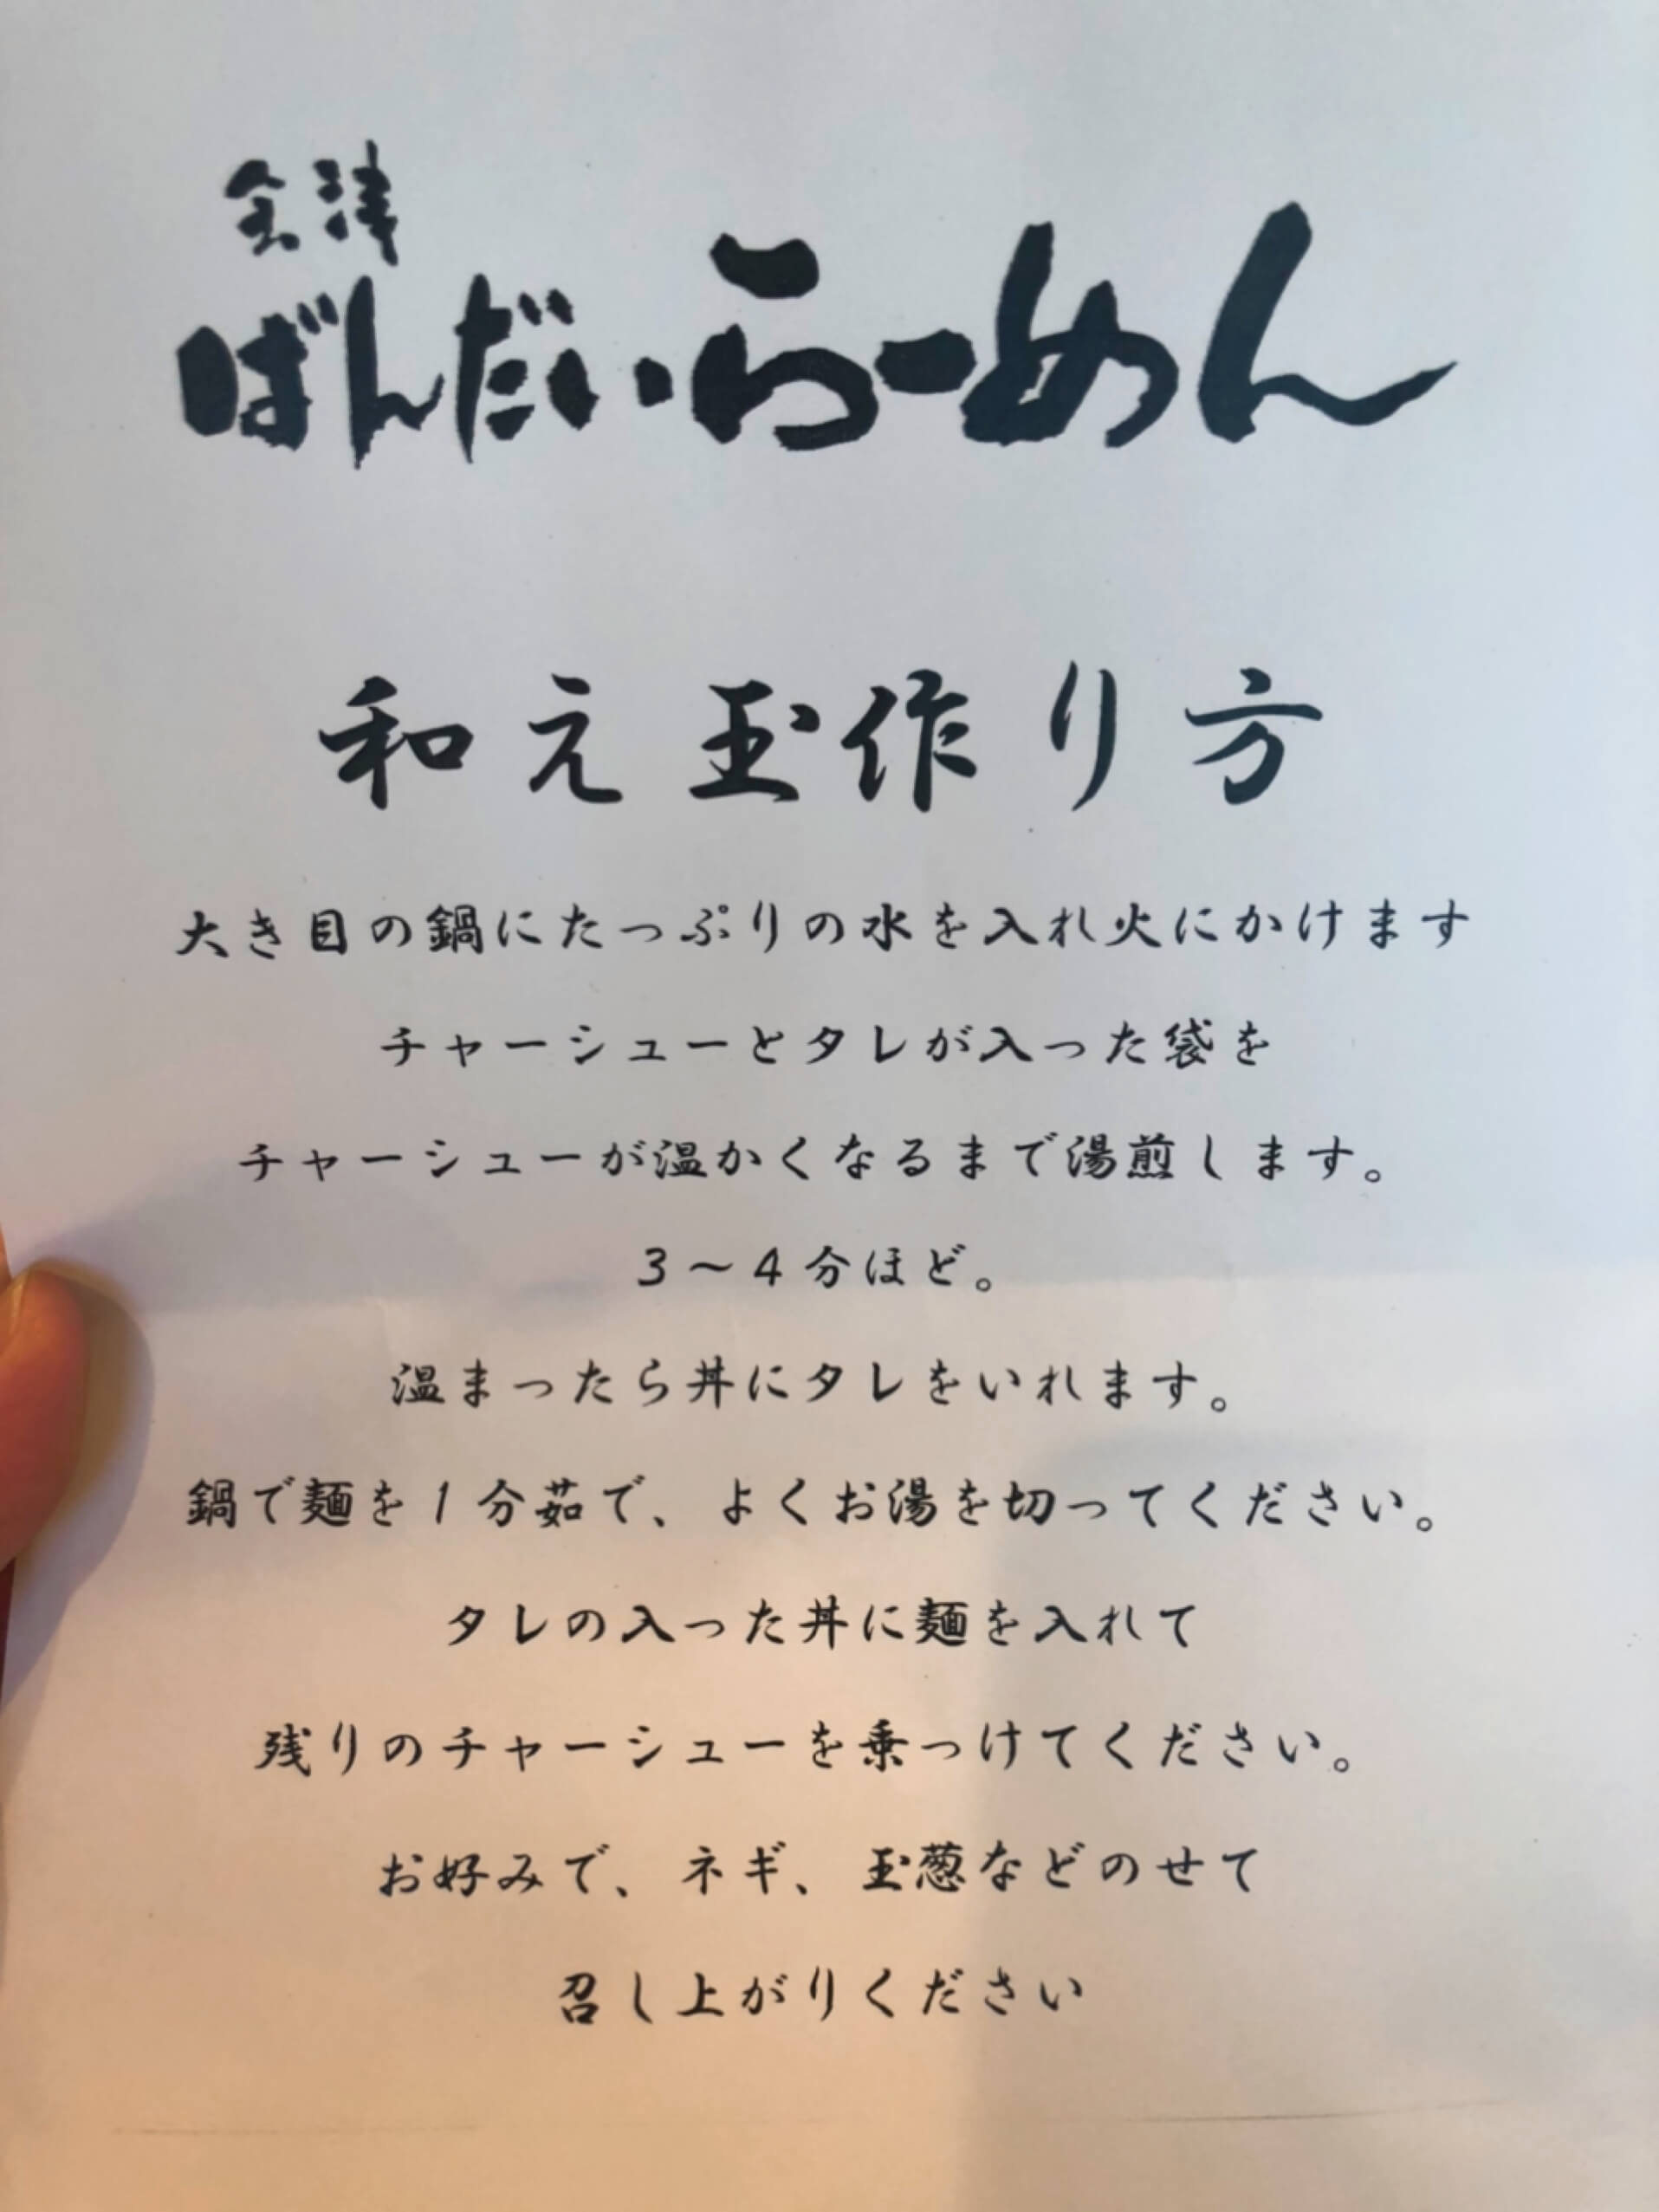 会津
ばんだいらーめん
和え玉作り方
大き目の鍋にたっぷりの水を入れ火にかけます
チャーシューとタレが入った袋を
チャーシューが温かくなるまで湯煎します。
3～4分ほど。
温まったら丼にタレをいれます。
鍋で麺を1分茹で、よくお湯を切ってください。
タレの入った丼に麺を入れて
残りのチャーシューを乗っけてください。
お好みで、ネギ、玉葱などのせて
召し上がりください